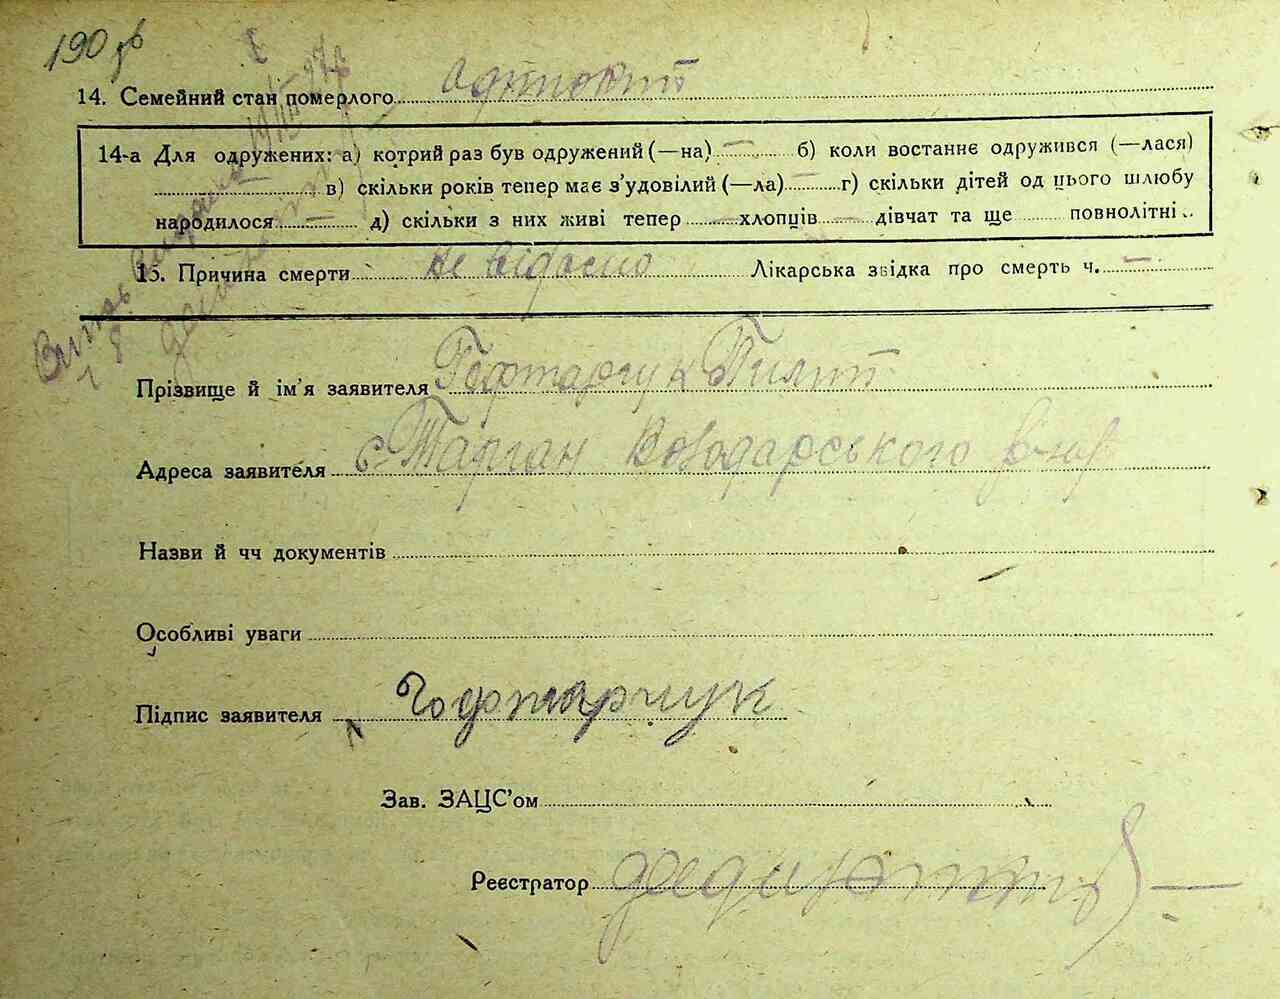 190 зв
14. Семейний стан померлого одинокий
14-а Для одружених: а) котрий раз був одружений (—на) — б) коли востаннє одружився (—лася)
— в) скільки років тепер має з'удовілий (—ла) — г) скільки дітей од цього шлюбу
народилося — д) скільки з них живі тепер — хлопців — дівчат та ще повнолітні
15. Причина смерти не відомо Лікарська звідка про смерть ч. —
Прізвище й ім'я заявителя Гофтарчук Пилип
Адреса заявителя с. Тарган Володарського р-ну
Назви й чч документів
Особливі уваги
Підпис заявителя Гофтарчук
Зав. ЗАЦС'ом
Реєстратор